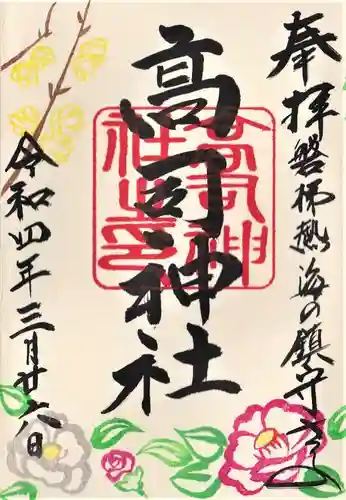 奉拝 磐梯熱海の鎮守さま
高司神社
令和四年三月廿六日
高司神
社之印